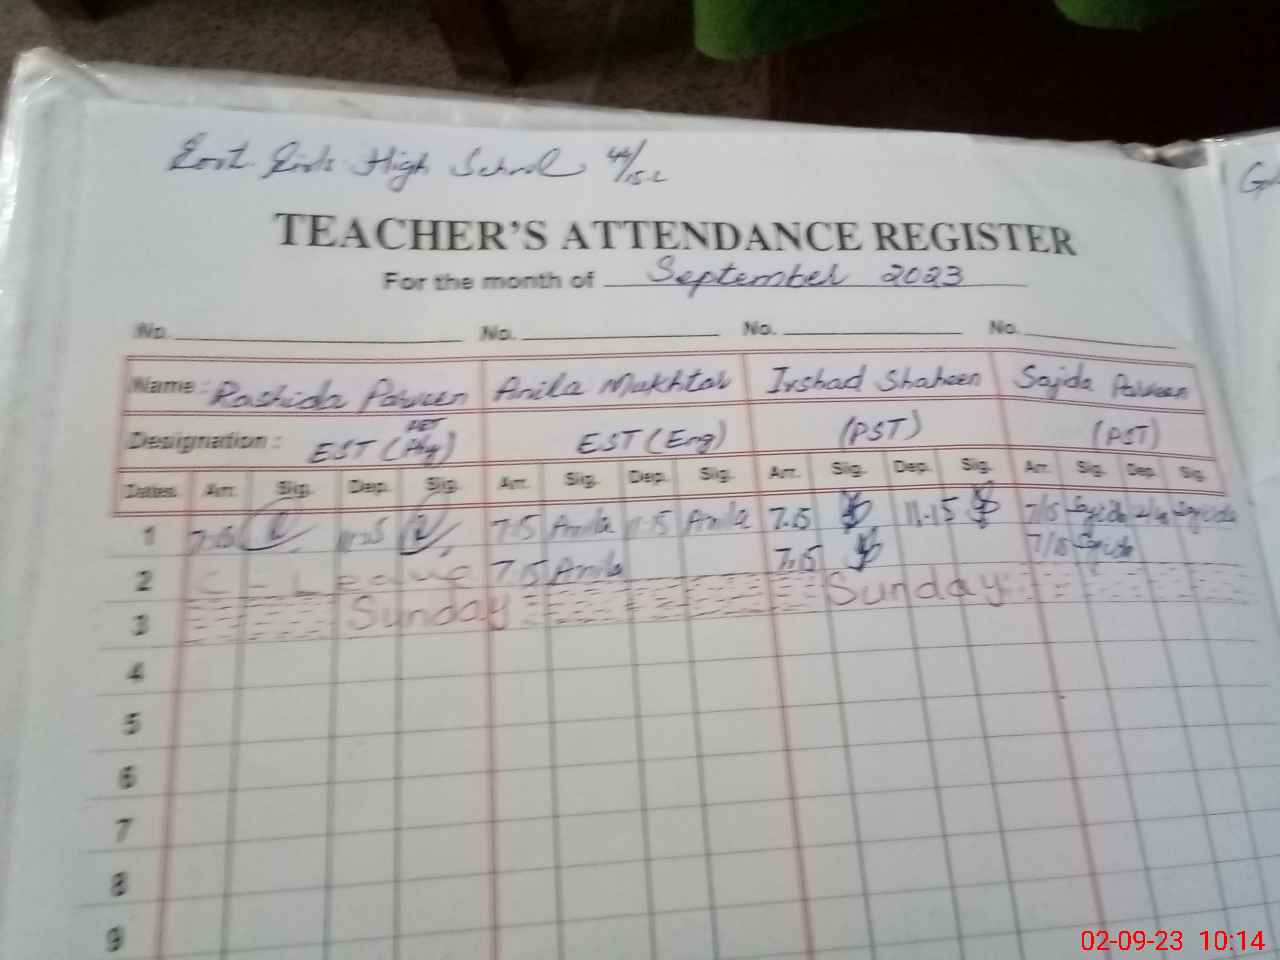 Govt. Girls High School 44/15-L
G
TEACHER'S ATTENDANCE REGISTER
For the month of September 2023
No. No. No. No.
Name: Rashida Parveen Anila Mukhtar Irshad Shaheen Sajida Parveen
Designation: EST ( ) EST (Eng) (PST) (PST)
Dates. Arr. Sig. Dep. Sig. Arr. Sig. Dep. Sig. Arr. Sig. Dep. Sig. Arr. Sig. Dep. Sig.
1 7.15 11.15 7.15 Anila 11.15 Anila 7.15 11.15 7/15 Sajida Sajida
2 C - Leave 7.15 Anila 7.15 7/15 Sajida
3 Sunday Sunday
4
5
6
7
8
9
02-09-23 10:14